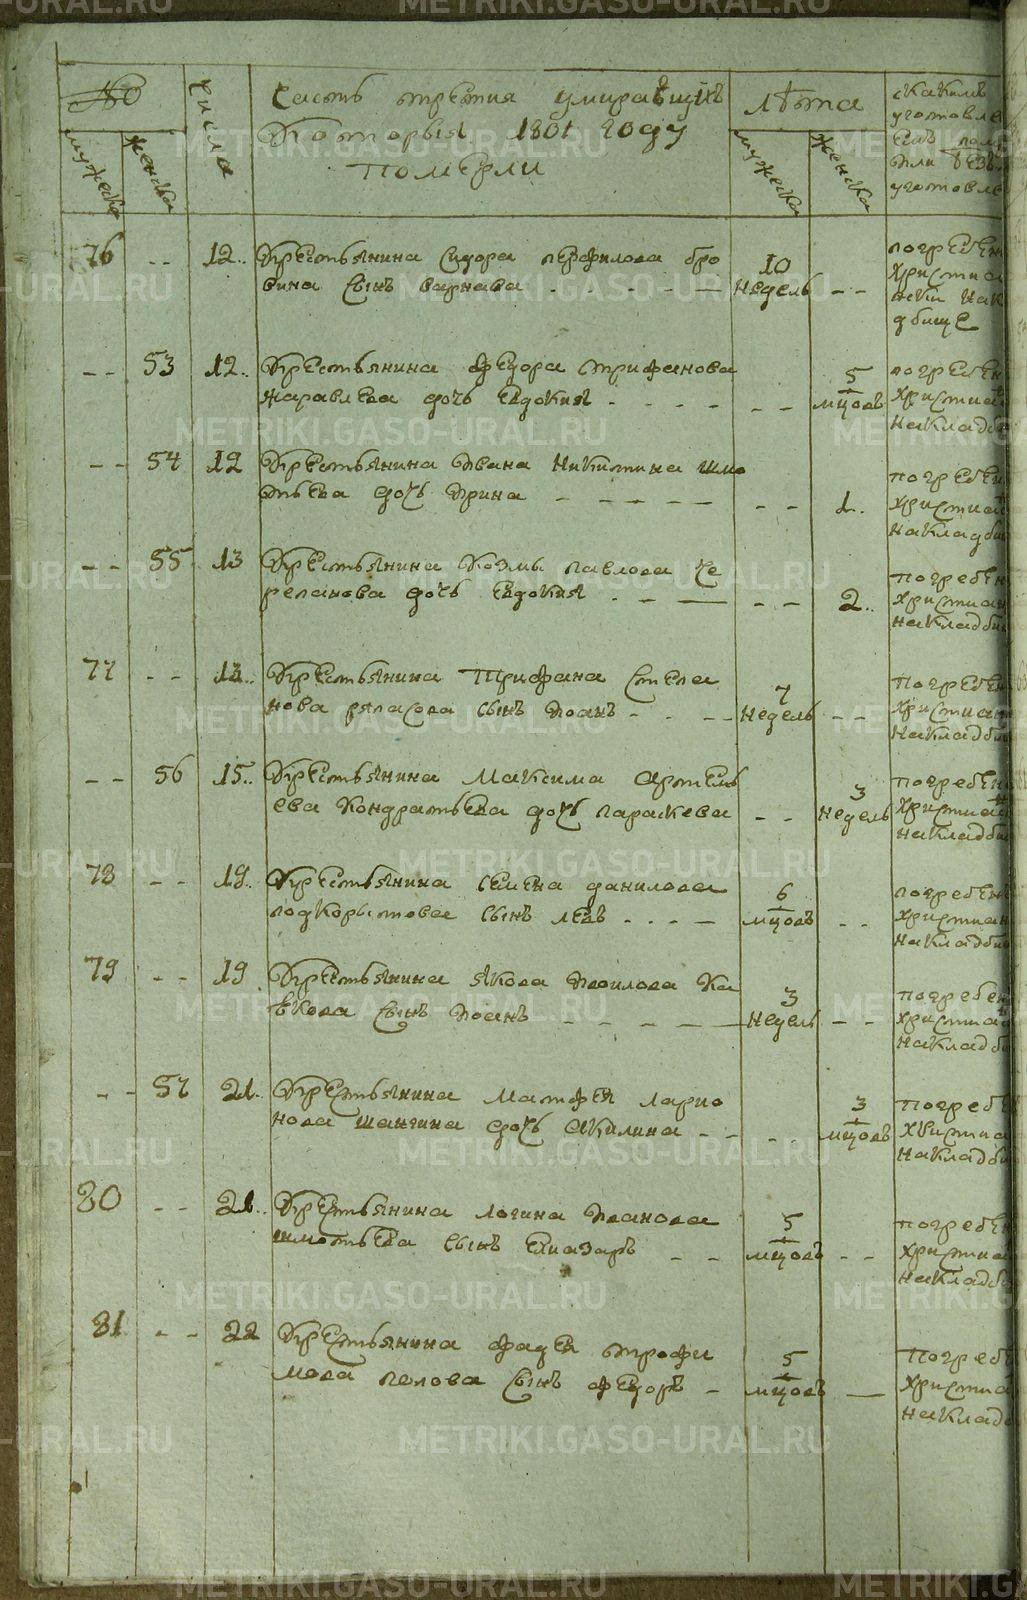 №
мужеска
женска
числа
часть третия умирающихъ
Которыя 1801 году
померли
лѣта
мужеска
женска
скакимъ
уготовле
или безъ
уготовле
76 -- 12.. Крестьянина Сидора перфилова бро
вина сынъ варнава - - - - - 10 недель --
погребен
христиа
ски на к
дбище
-- 53 12.. Крестьянина федора трифанова
жаравлева дочь Евдокия - - - - -- 5 мцовъ
погребен
христиа
накладб
-- 54 12 Крестьянина Ивана Никитина шмо
тьева дочь Ирина - - - - - -- 1.
погребен
христиа
накладби
-- 55 13 Крестьянина Козмы павлова че
репанова дочь Евдокия - - - -- 2..
погребен
христиан
накладби
77 -- 13.. Крестьянина Трифана Степа
нова ряпасова сынъ Иоанъ - - - - 7 недель --
погребен
христиан
накладби
-- 56 15.. Крестьянина Максима Артемь
ева Кондратьева дочь параскева -- 3 недель
погребен
христиа
накладб
78 -- 19.. Крестьянина семена данилова
подкорытова сынъ левъ - - - - 6 мцовъ --
погребен
христиан
накладби
79 -- 19 Крестьянина якова Измоилова Ка
вкова сынъ Иоанъ - - - - - 3 недель --
погребен
христиа
накладб
-- 57 21. Крестьянина матфея ларио
нова шангина дочь акилина - - -- 3 мцовъ
погреб
христиа
накладби
80 -- 21.. Крестьянина логина Иванова
шмотьева сынъ Елиазаръ - - 5 мцовъ --
погребен
христиа
накладб
81 -- 22 Крестьянина фадея трофи
мова попова сынъ федоръ - 5 мцовъ -
погреб
христиа
наклад
METRIKI.GASO-URAL.RU